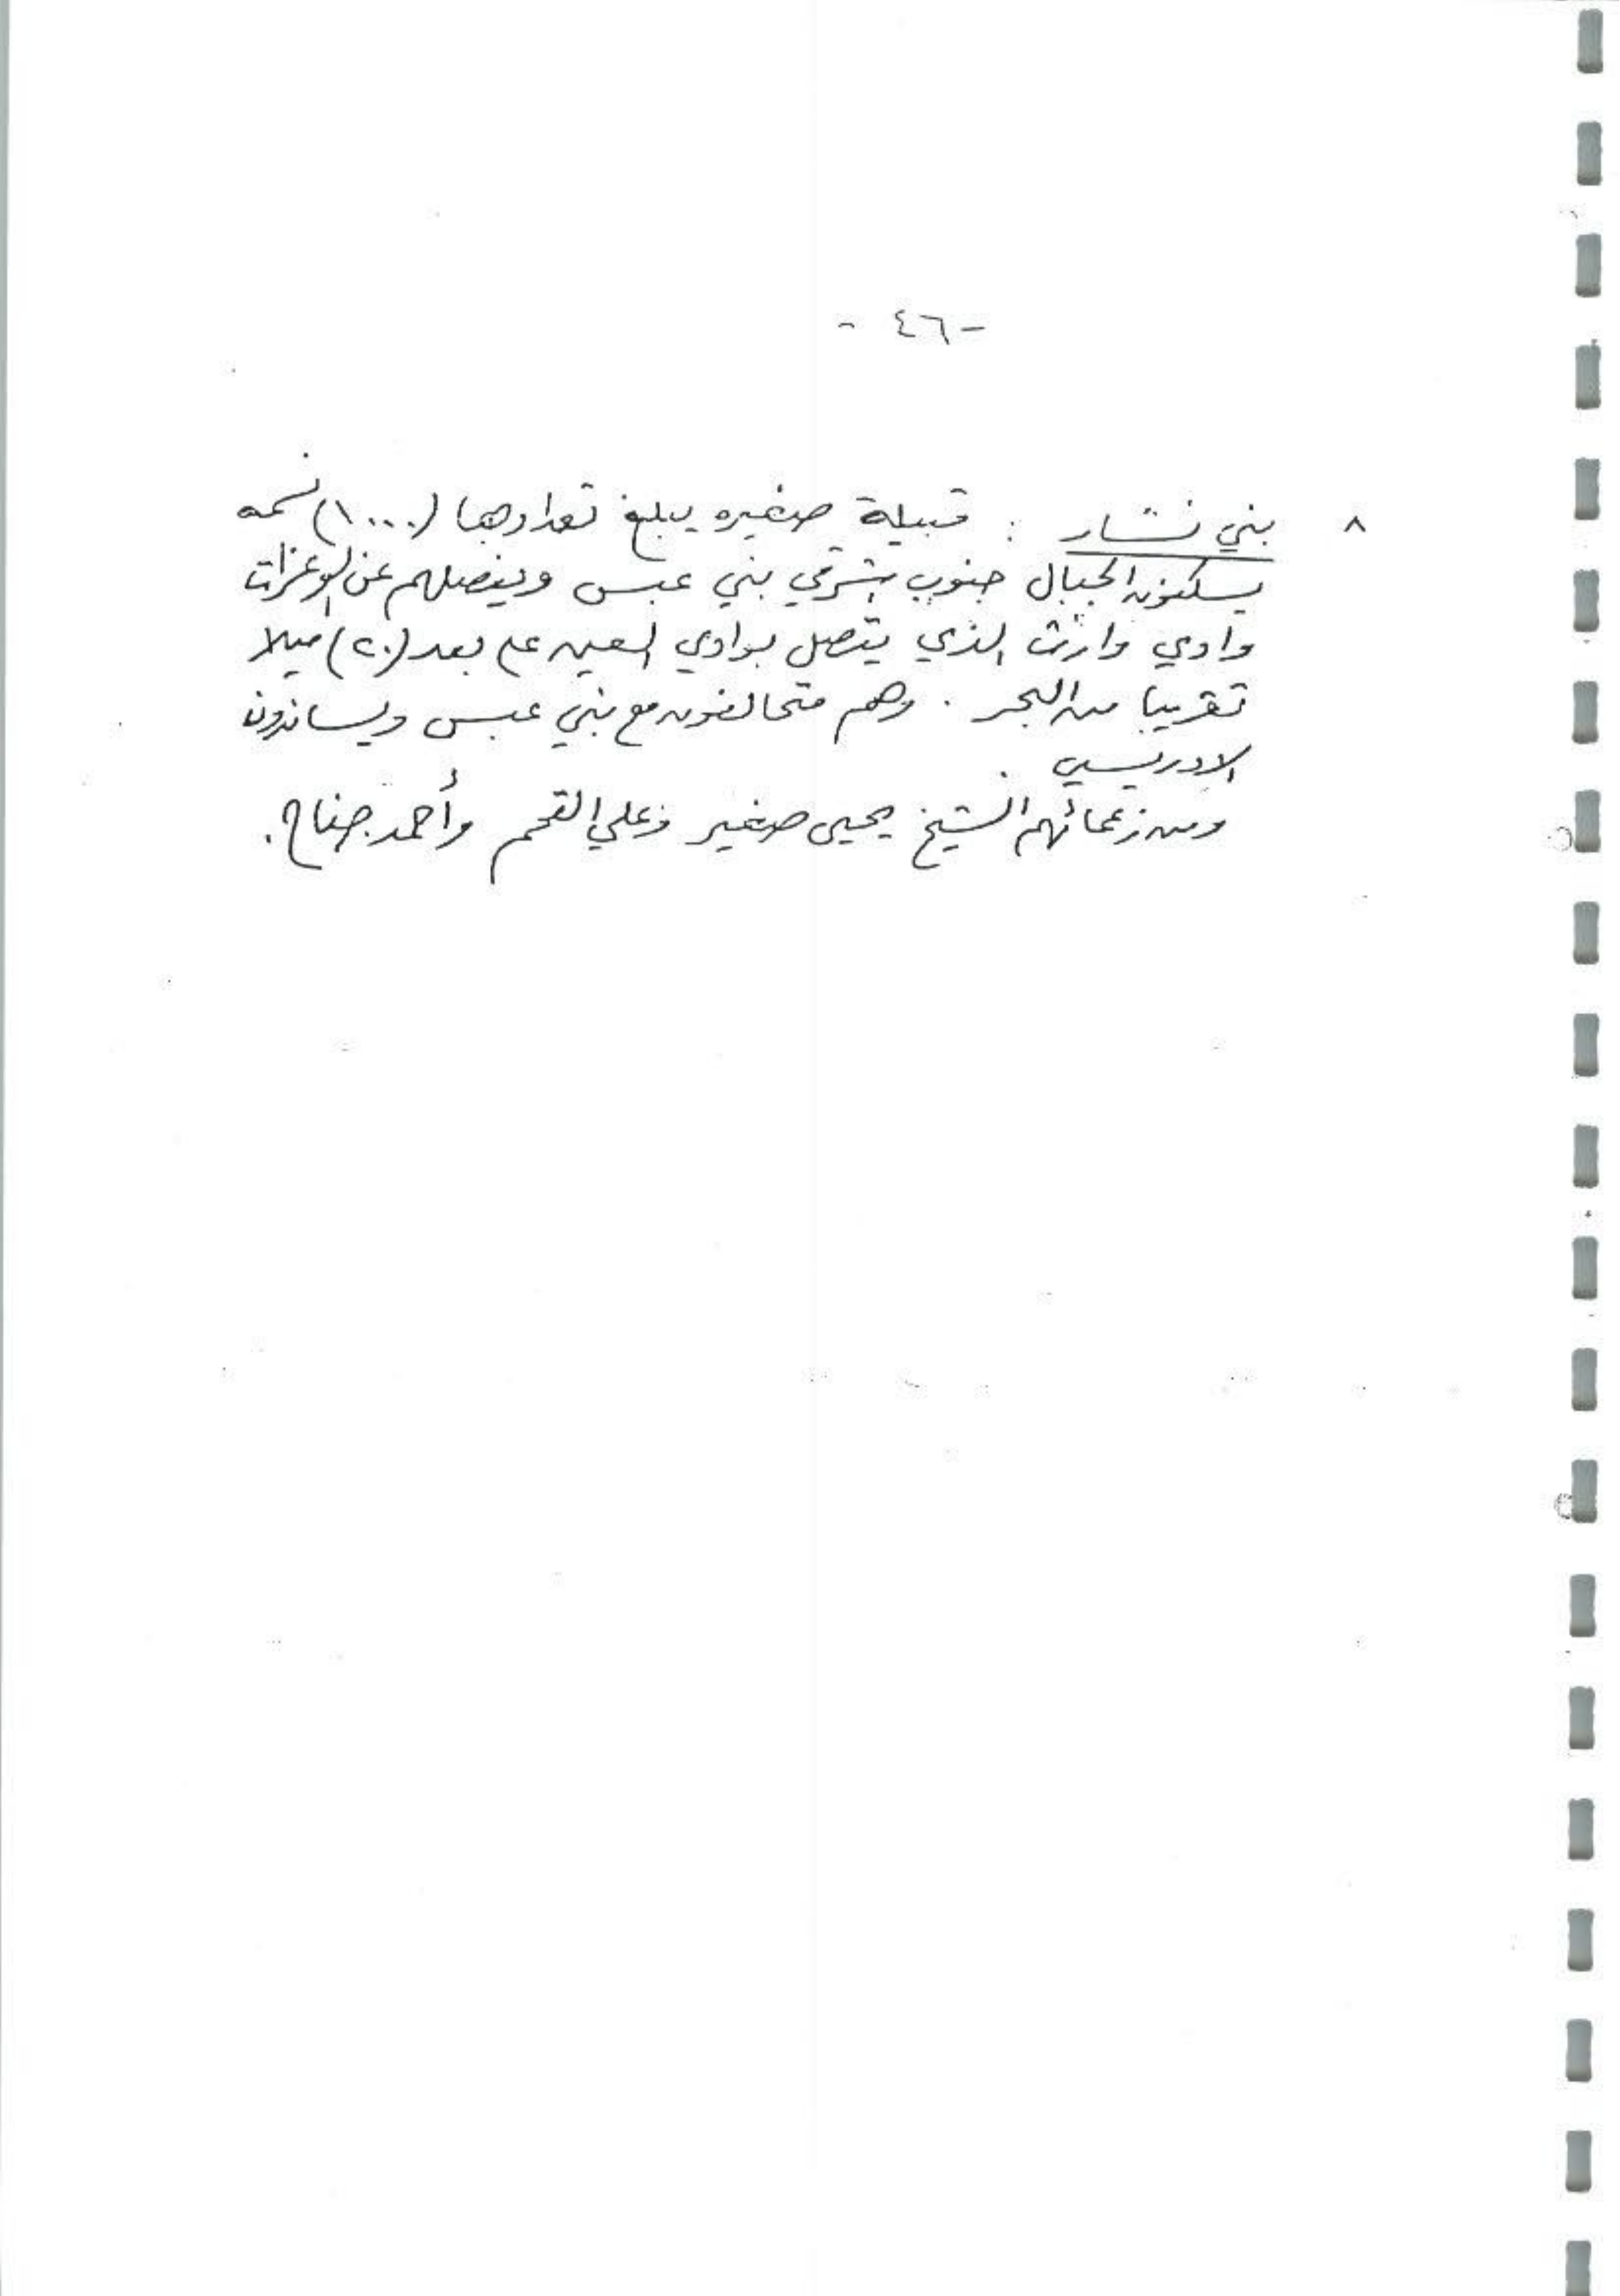 - ٤٦ -
٨ بني نشار : قبيلة صغيره يبلغ تعدادها (١٠٠٠) نسمه
يسكنون الجبال جنوب شرقي بني عبس ويفصلهم عن الوعزات
وادي وارث الذي يتصل بوادي العين على بعد (٢٠) ميلا
تقريبا من البحر . وهم متحالفون مع بني عبس ويساندون
الادريسي .
ومن زعمائهم الشيخ يحيى صغير وعلي القحم وأحمد جناح .